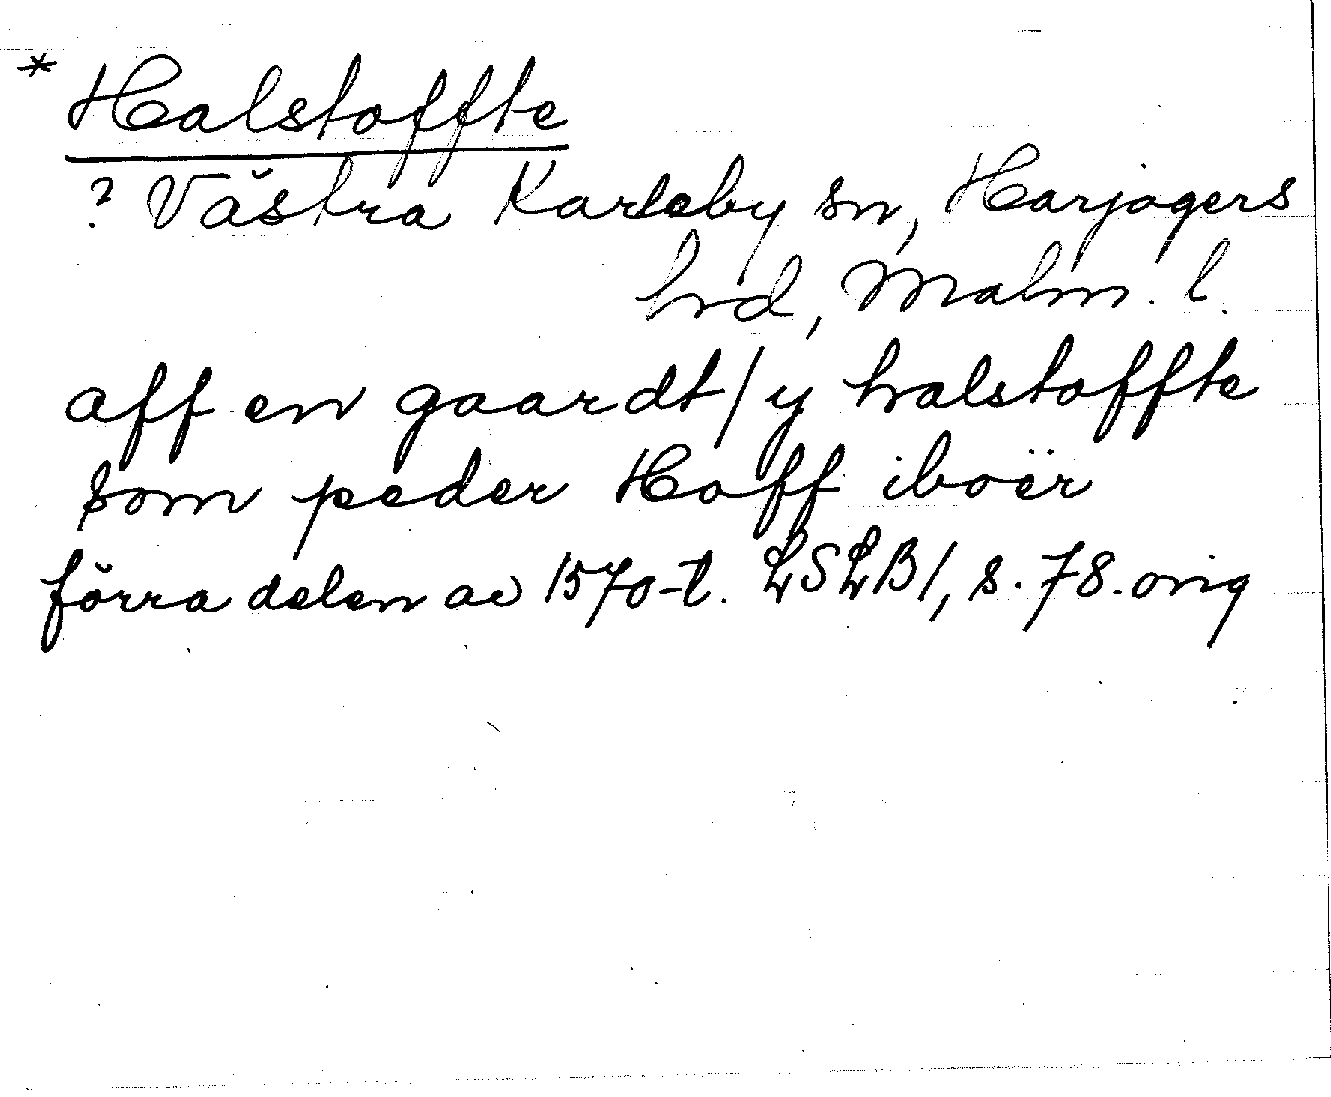 * Halstoffte
? Västra Karleby sn, Harjagers
hrd, Malm. l.
aff en gaardt / y halstoffte
som peder Hoff iboër
förra delen av 1570-t. LSLB 1, s. 78. orig